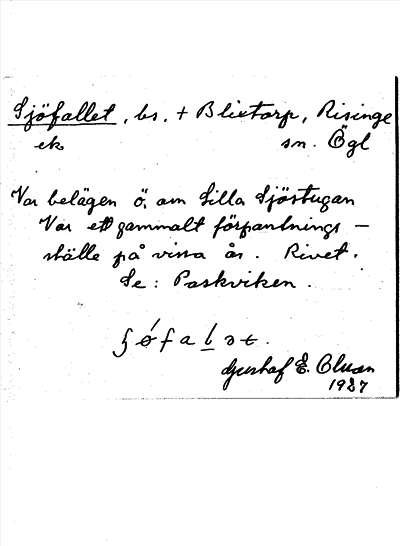 Sjöfallet, bs. + Blixtorp, Risinge
ek sn. Ögl
Var belägen ö. om Lilla Sjöstugan
Var ett gammalt förpantnings-
ställe på vissa år. Rivet.
Se: Paskviken.
Gustaf E. Olsson
1937